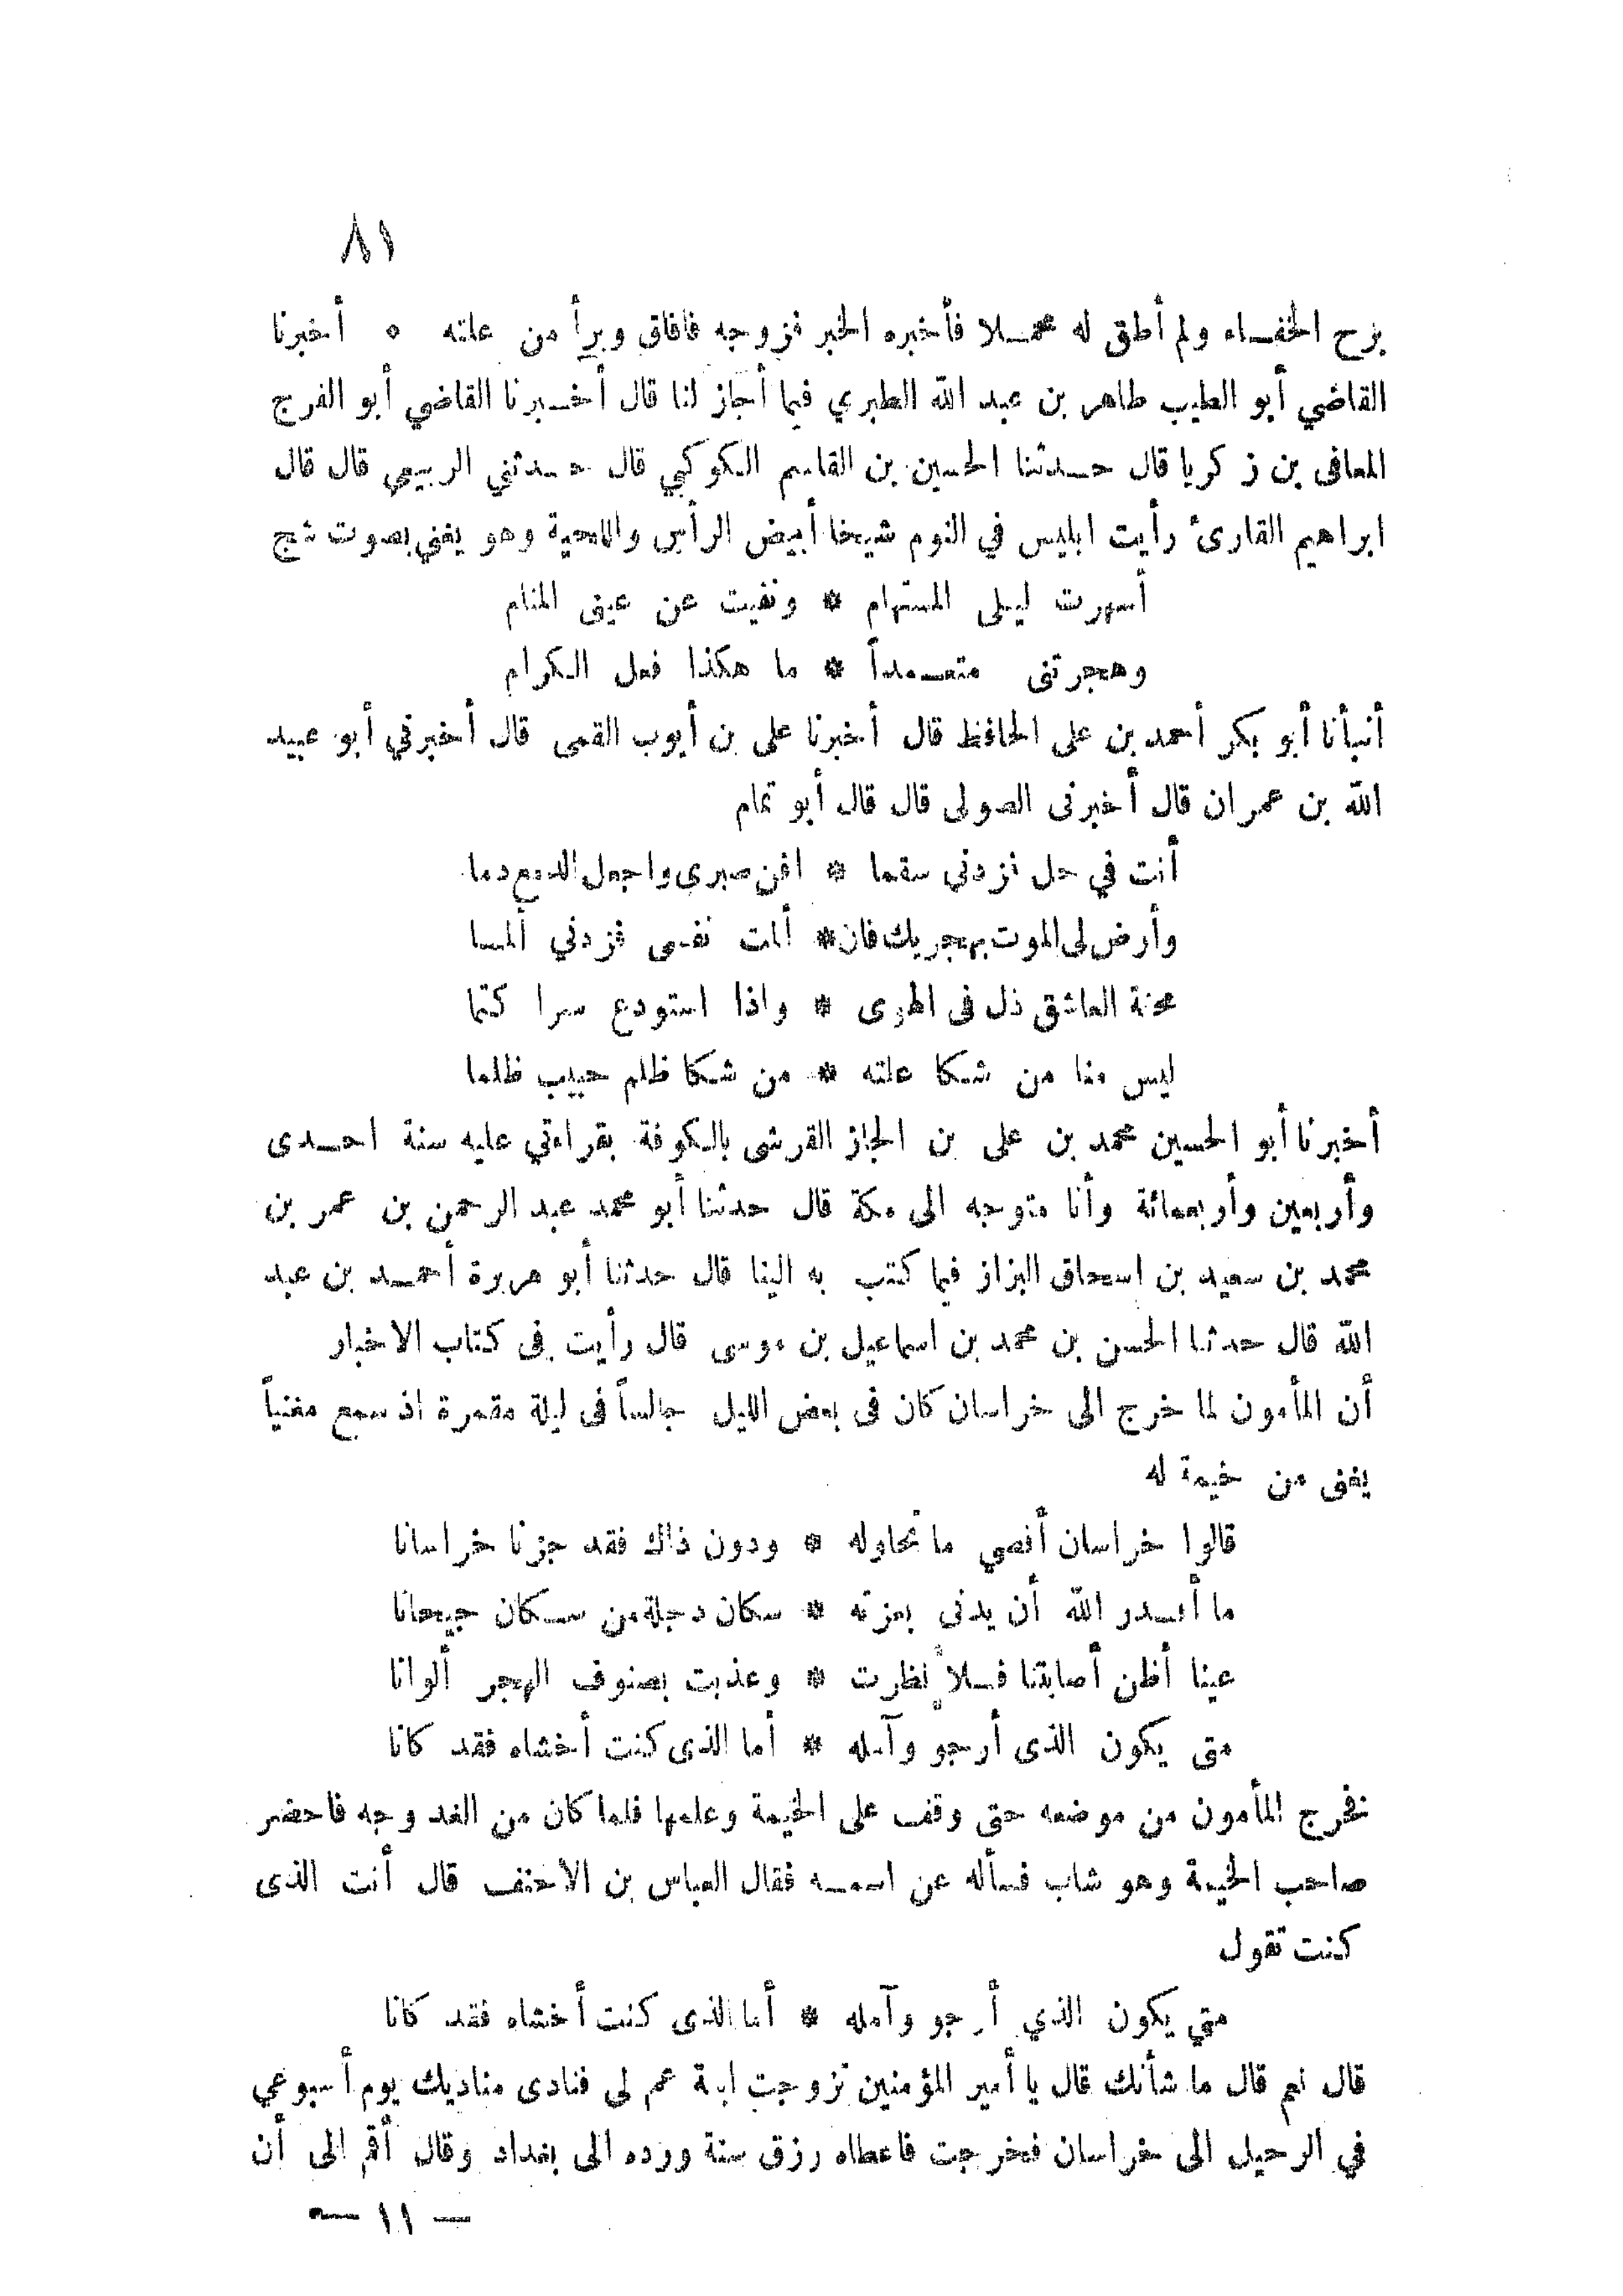 ٨١
برح الخفاء ولم أطق له محملا فأخبره الخبر فزوجه فافاق وبرأ من علته * أخبرنا
القاضي أبو الطيب طاهر بن عبد الله الطبري فيما أجاز لنا قال أخبرنا القاضي أبو الفرج
المعافى بن زكريا قال حدثنا الحسين بن القاسم الكوكبي قال حدثني الربيعي قال قال
ابراهيم القارئ رأيت ابليس في النوم شيخا أبيض الرأس واللحية وهو يغني بصوت شج
أسهرت ليلى المستهام * ونفيت عن عينى المنام
وهجرتنى متعمداً * ما هكذا فعل الكرام
أنبأنا أبو بكر أحمد بن على الحافظ قال أخبرنا على بن أيوب القمى قال أخبرني أبو عبيد
الله بن عمران قال أخبرنى الصولى قال قال أبو تمام
أنت في حل فزدني سقما * افن صبرى واجعل الدمع دما
وأرض لى الموت بهجريك فان * ألمت نفسى فزدني ألما
محنة العاشق ذل فى الهوى * واذا استودع سرا كتما
ليس منا من شكا علته * من شكا ظلم حبيب ظلما
أخبرنا أبو الحسين محمد بن على بن الجاز القرشى بالكوفة بقراءتي عليه سنة احدى
وأربعين وأربعمائة وأنا متوجه الى مكة قال حدثنا أبو محمد عبد الرحمن بن عمر بن
محمد بن سعيد بن اسحاق البزاز فيما كتب به الينا قال حدثنا أبو هريرة أحمد بن عبد
الله قال حدثنا الحسن بن محمد بن اسماعيل بن موسى قال رأيت فى كتاب الاخبار
أن المأمون لما خرج الى خراسان كان فى بعض الليل جالساً فى ليلة مقمرة اذ سمع مغنياً
يغنى من خيمة له
قالوا خراسان أقصي ما تحاوله * ودون ذاك فقد جزنا خراسانا
ما أقدر الله أن يدنى بعزته * سكان دجلة من سكان جيحانا
عينا أظن أصابتنا فلا نظرت * وعذبت بصنوف الهجر ألوانا
متى يكون الذى أرجو وآمله * أما الذى كنت أخشاه فقد كانا
فخرج المأمون من موضعه حتى وقف على الخيمة وعلمها فلما كان من الغد وجه فاحضر
صاحب الخيمة وهو شاب فسأله عن اسمه فقال العباس بن الاحنف قال أنت الذى
كنت تقول
متي يكون الذي أرجو وآمله * أما الذى كنت أخشاه فقد كانا
قال نعم قال ما شأنك قال يا أمير المؤمنين تزوجت ابنة عم لى فنادى مناديك يوم أسبوعي
في الرحيل الى خراسان فخرجت فاعطاه رزق سنة ورده الى بغداد وقال أقم الى أن
— ١١ —